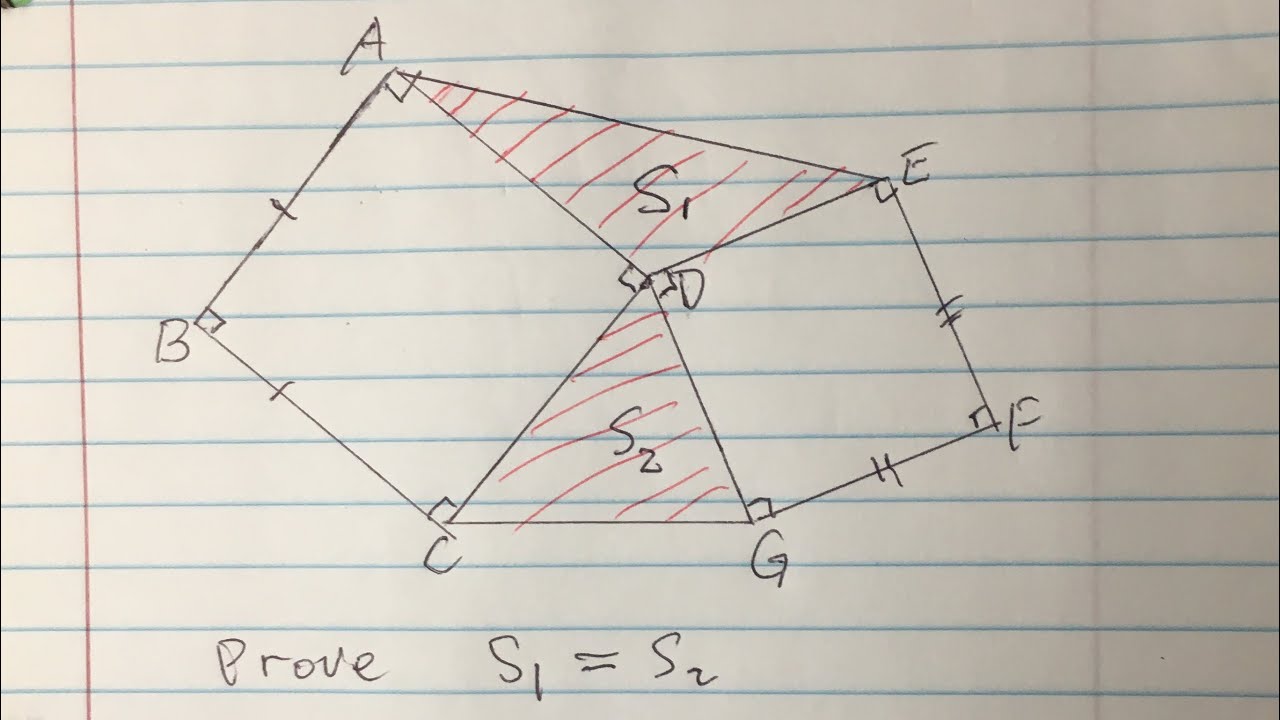 A
E
S1
B
D
F
S2
C
G
Prove S1 = S2